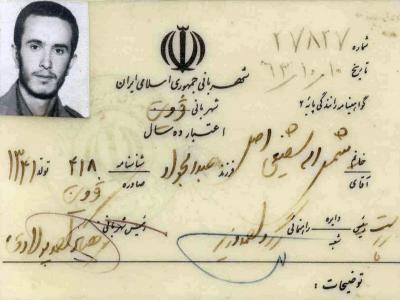 شماره ۲۷۸۲۷
شهربانی جمهوری اسلامی ایران
تاریخ ۶۳/۱۰/۱۰
شهربانی قزوین
گواهینامه رانندگی پایه ۲
اعتبار ده سال
خانم آقای شمس اله شفیعی اصل فرزند عبدالجواد شناسنامه ۴۱۸ تولد ۱۳۴۱
صادره قزوین
رئیس دایره شعبه راهنمائی رئیس شهربانی
توضیحات :